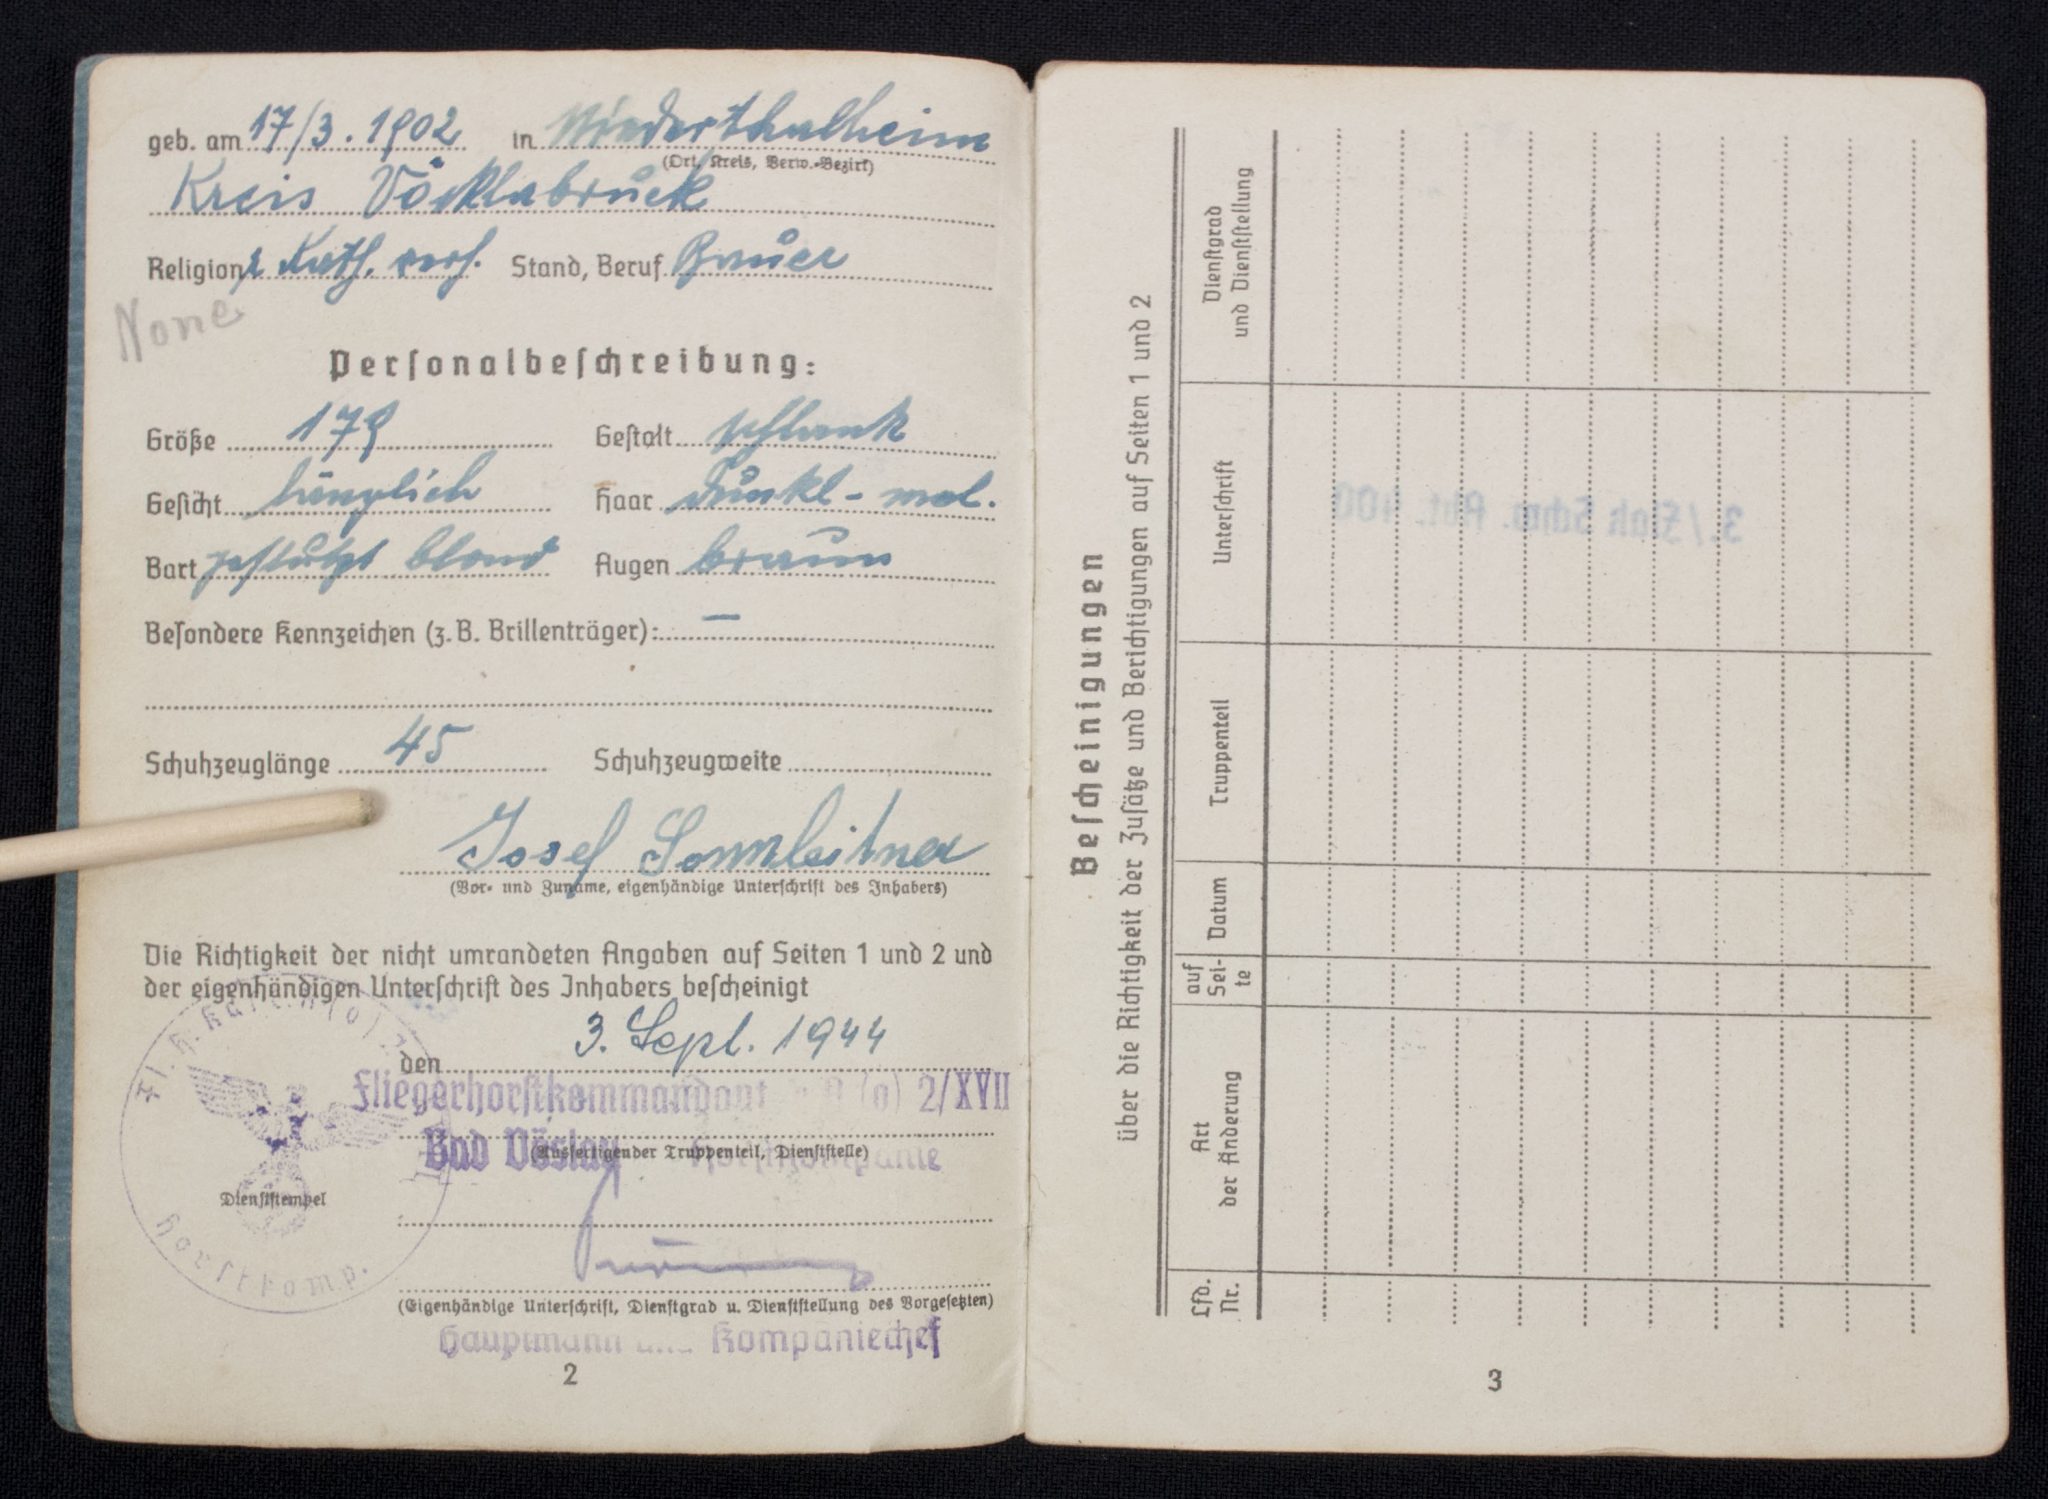 geb. am 17/3. 1902 in Niederthalheim
(Ort, Kreis, Verw.-Bezirk)
Kreis Vöcklabruck
Religion r. Kath. verh. Stand, Beruf Bauer
None
Personalbeschreibung:
Größe 179 Gestalt schlank
Gesicht länglich Haar dunkl - mel.
Bart gestutzt blond Augen braun
Besondere Kennzeichen (z. B. Brillenträger): –
Schuhzeuglänge 45 Schuhzeugweite
Josef Sonnleitner
(Vor- und Zuname, eigenhändige Unterschrift des Inhabers)
Die Richtigkeit der nicht umrandeten Angaben auf Seiten 1 und 2 und
der eigenhändigen Unterschrift des Inhabers bescheinigt
den 3. Sept. 1944
Fliegerhorstkommandant (o) 2/XVII
Bad Vöslau Horstkompanie
(Ausfertigender Truppenteil, Dienststelle)
Dienststempel
Horstkomp.
(Eigenhändige Unterschrift, Dienstgrad u. Dienststellung des Vorgesetzten)
Hauptmann und Kompaniechef
2
Bescheinigungen
über die Richtigkeit der Zusätze und Berichtigungen auf Seiten 1 und 2
Lfd. Nr.
Art der Änderung
auf Sei-te
Datum
Truppenteil
Unterschrift
Dienstgrad und Dienststellung
3./Flak Schw. Abt. 400
3